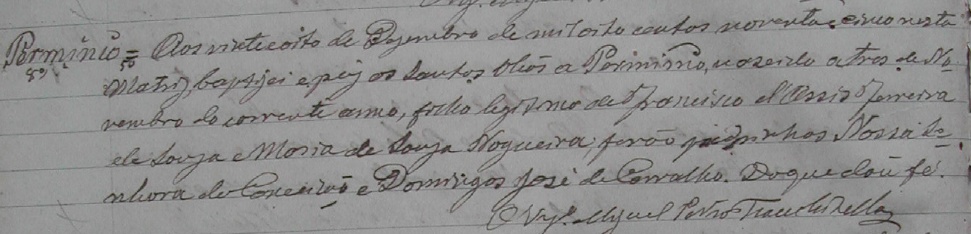 Perminio = Aos vinte e oito de Dezembro de mil oito centos noventa e cinco nesta
Matriz, baptizei e puz os Santos Oleos a Perminio, nascido a tres de No-
vembro do corrente anno, filho legitimo de Francisco d'Assis Ferreira
de Souza e Maria de Souza Nogueira; forão padrinhos Nossa Se-
nhora da Conceição e Domingos José de Carvalho. Do que dou fé.
O Vigr.º Miguel Pedro